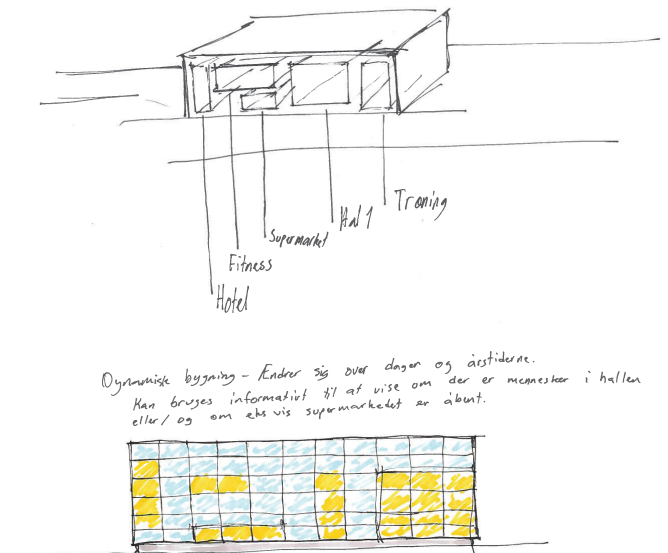 Træning
Hal 1
Supermarket
Fitness
Hotel
Dynamisk bygning - Ændrer sig over dagen og årstiderne.
Kan bruges informativt til at vise om der er mennesker i hallen
eller/og om eks vis supermarkedet er åbent.